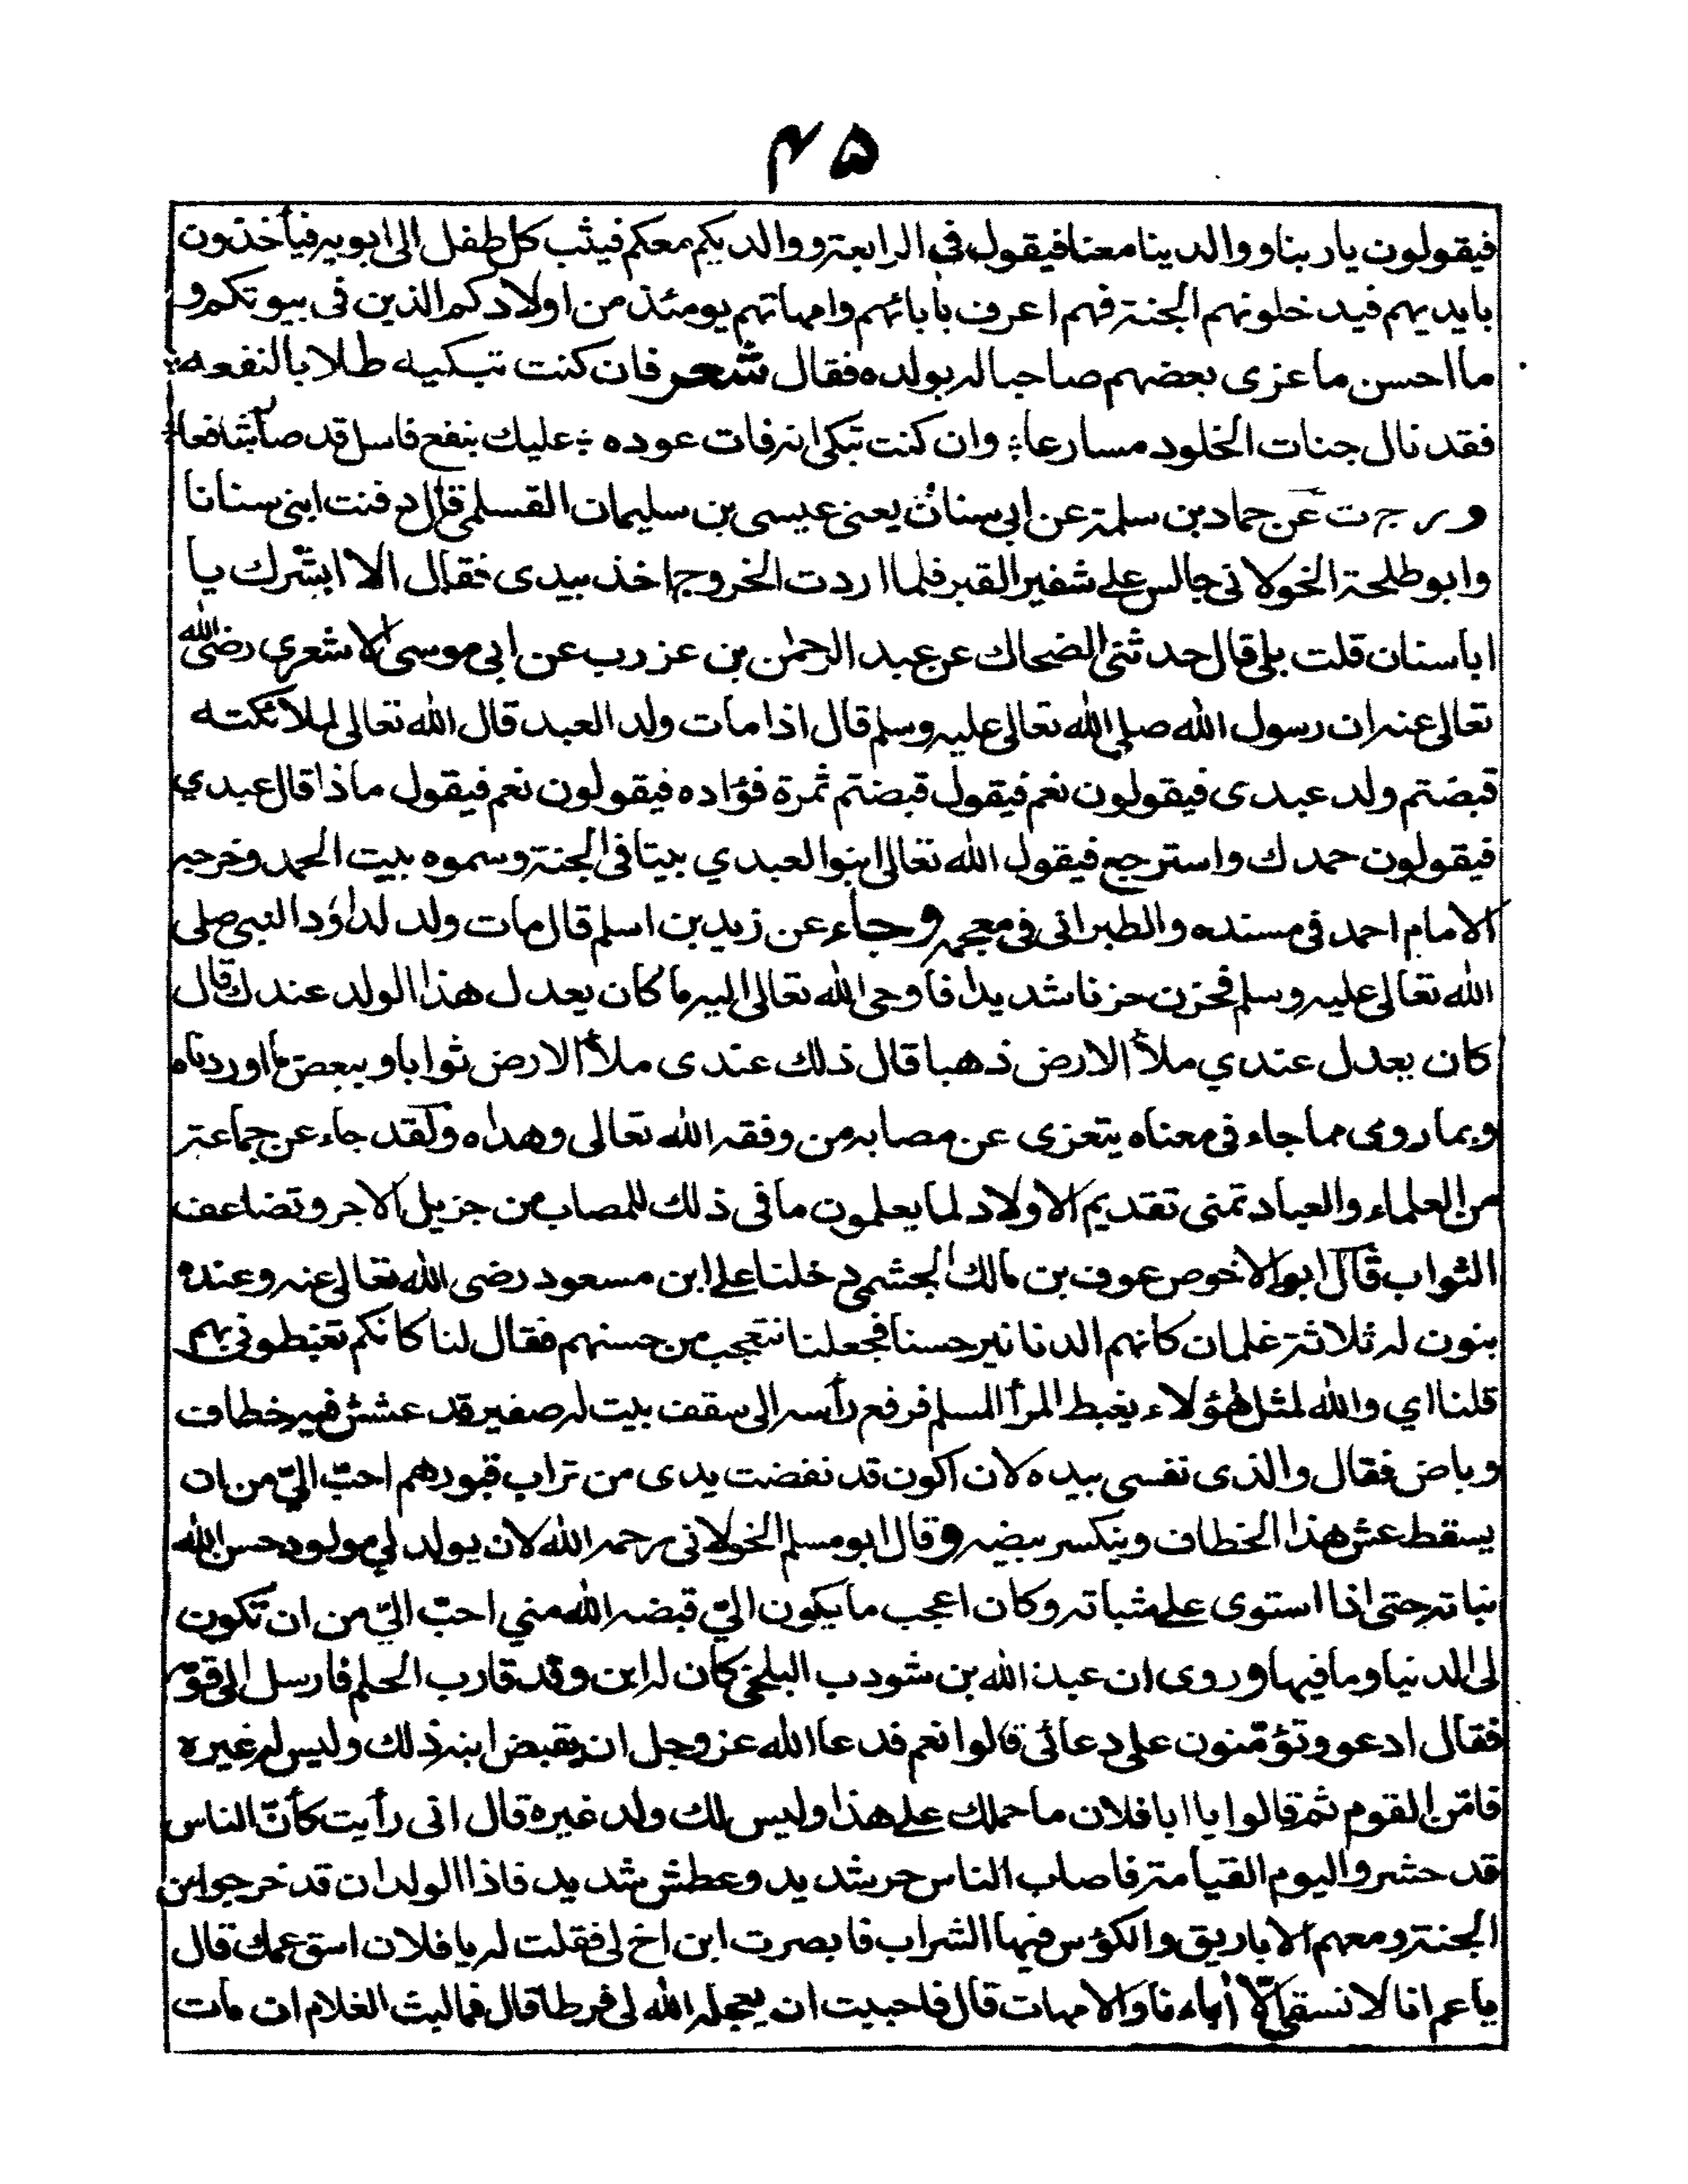 ۴۵
فيقولون يا ربنا ووالدينا معنا فيقول في الرابعة ووالديكم معكم فيثب كل طفل الى ابويه فيأخذون
بايديهم فيدخلونهم الجنة فهم اعرف بآبائهم وامهاتهم يومئذ من اولادكم الذين في بيوتكم و
ما احسن ما عزى بعضهم صاحبا له بولده فقال شعر فان كنت تبكيه طلابا لنفعه
فقد نال جنات الخلود مسارعا وان كنت تبكي انه فات عوده عليك بنفع فاسل قد صار شافعا
عن حماد بن سلمة عن ابي سنان يعني عيسى بن سليمان القسلمي قال دفنت ابني سنانا
وابو طلحة الخولاني جالس على شفير القبر فلما اردت الخروج اخذ بيدى فقال الا ابشرك يا
ابا سنان قلت بلى قال حدثني الضحاك عن عبد الرحمن بن عزرب عن ابي موسى الاشعري رضى الله
تعالى عنه ان رسول الله صلى الله تعالى عليه وسلم قال اذا مات ولد العبد قال الله تعالى لملائكته
قبضتم ولد عبدى فيقولون نعم فيقول قبضتم ثمرة فؤاده فيقولون نعم فيقول ماذا قال عبدي
فيقولون حمدك واسترجع فيقول الله تعالى ابنوا لعبدي بيتا في الجنة وسموه بيت الحمد وخرجه
الامام احمد في مسنده والطبراني في معجمه وجاء عن زيد بن اسلم قال مات ولد لداؤد النبي صلى
الله تعالى عليه وسلم فحزن حزنا شديدا فاوحى الله تعالى اليه ما كان يعدل هذا الولد عندك قال
كان يعدل عندي ملأ الارض ذهبا قال ذلك عندى ملأ الارض ثوابا وببعض ما اوردناه
وبما روى مما جاء في معناه يتعزى عن مصابه من وفقه الله تعالى وهداه ولقد جاء عن جماعة
من العلماء والعباد تمنى تقديم الاولاد لما يعلمون ما في ذلك للمصاب من جزيل الاجر وتضاعف
الثواب قال ابو الاخوص عوف بن مالك الجشمي دخلنا على ابن مسعود رضى الله تعالى عنه وعنده
بنون له ثلاثة غلمان كانهم الدنانير حسنا فجعلنا نتعجب من حسنهم فقال لنا كانكم تغبطوني بهم
قلنا اي والله لمثل هؤلاء يغبط المرأ المسلم فرفع رأسه الى سقف بيت له صغير قد عشش فيه خطاف
وباض فقال والذى نفسي بيده لان اكون قد نفضت يدى من تراب قبورهم احبّ اليّ من ان
يسقط عش هذا الخطاف وينكسر بيضه وقال ابو مسلم الخولاني رحمه الله لان يولد لي مولود حسن الله
نباته حتى اذا استوى على شبابه وكان اعجب ما يكون اليّ قبضه الله مني احبّ اليّ من ان تكون
لى الدنيا وما فيها وروى ان عبد الله بن شودب البلخي كان له ابن وقد قارب الحلم فارسل الى قومه
فقال ادعو وتؤمّنون على دعائى قالوا نعم فدعا الله عز وجل ان يقبض ابنه ذلك وليس له غيره
فامّن القوم ثم قالوا يا ابا فلان ما حملك على هذا وليس لك ولد غيره قال اني رأيت كأنّ الناس
قد حشروا اليوم القيامة فاصاب الناس حر شديد وعطش شديد فاذا الولدان قد خرجوا من
الجنة ومعهم الاباريق والكؤس فيها الشراب فابصرت ابن اخ لى فقلت له يا فلان اسق عمك قال
يا عم انا لا نسقي الّا أباءنا والامهات قال فاحببت ان يجعله الله لى فرطا قال فما لبث الغلام ان مات